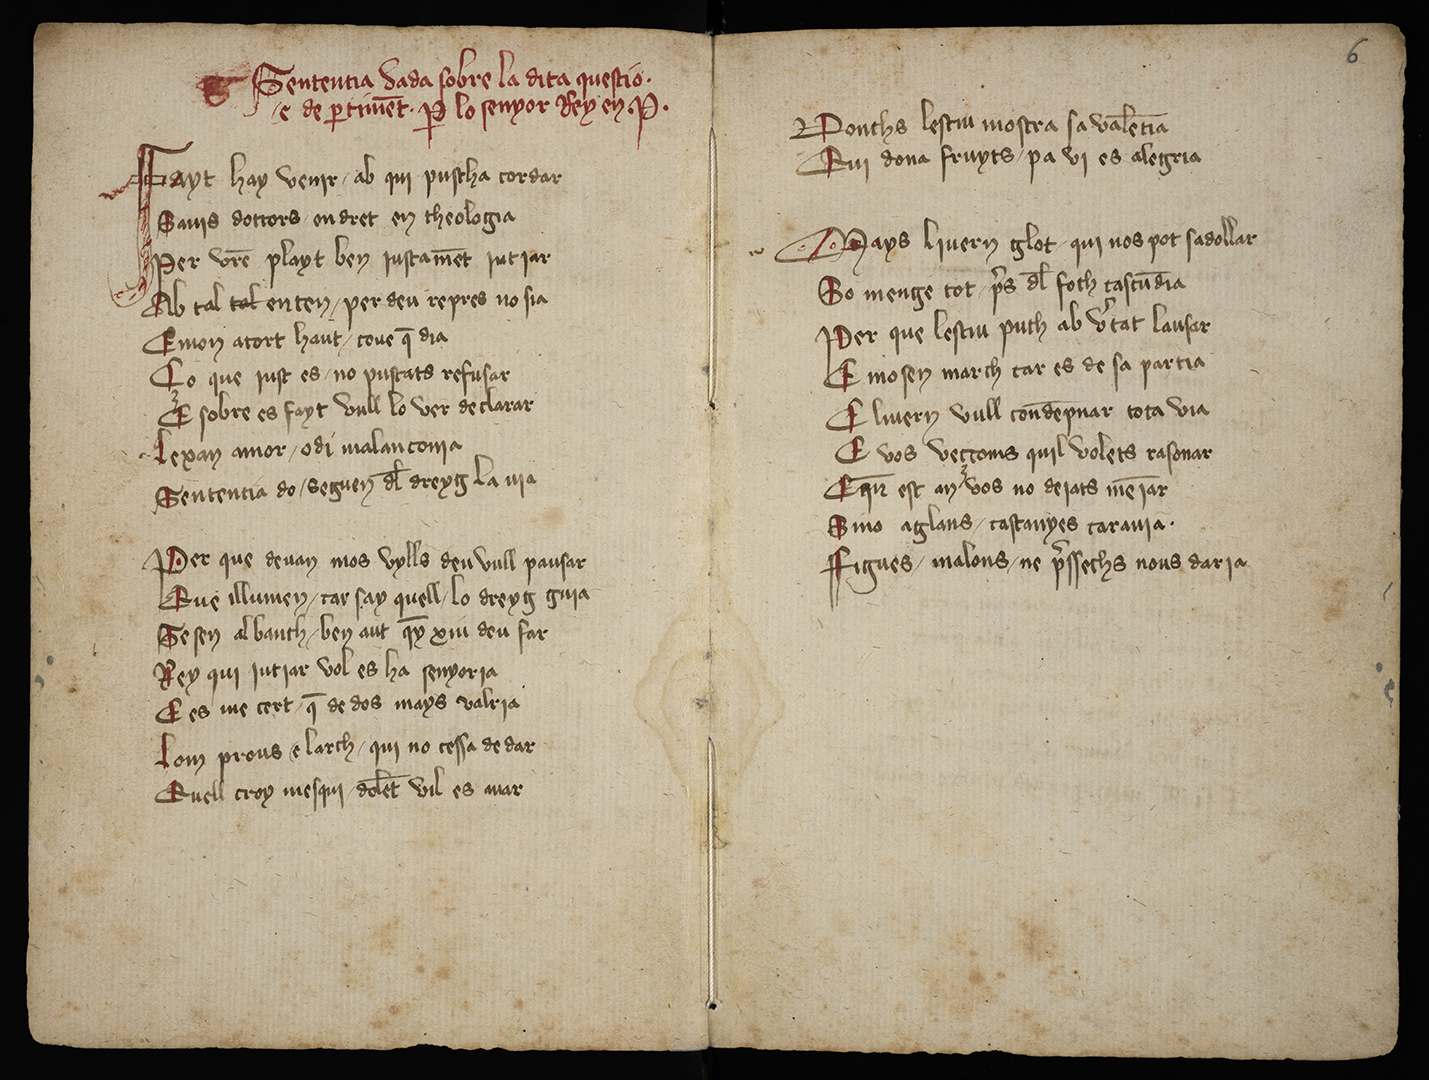 Sententia dada sobre la dita questio.
e de ꝑtimēt. ꝑ lo senyor Rey en .P.
Fayt hay venir / ab qui puscha cordar
Sauis dottors / en dret en theologia
Per vr̄e playt ben iustamēt iutiar
Ab tal tal enten / per deu repres no sia
E mon acort haut / coue q̄ dia
Co que iust es / no puscats refusar
E sobre es fayt vull lo ver declarar
Lexan amor / odi malanconia
Sententia do / seguen dl̄ dreyg la via
Per que deuan mos vylls deu vull pausar
Que illumen / car say quell / lo dreyg guia
Sesen al banch / ben aut qy xiiii deu far
Rey qui iutiar vol es ha senyoria
E es me cert / q̄ de dos mays valria
Lom prous e larch / qui no cessa de dar
Quell croy mesqui / dolēt vil es auar
6
Donchs lestiu mostra sa valētia
Qui dona fruyts / pa vi es alegria
Mays liuern glot / qui nos pot sadollar
So menge tot / p̄s dl̄ foch cascūdia
Per que lestiu puch ab v̄tat lausar
E mosen march car es de sa partia
E liuern vull condēpnar tota via
E vos vezcoms quil volets rasonar
E qn̄ est an vos no deiats mēiar
Sino aglans / castanyes carauia.
Figues / malons / ne p̄ssechs nous daria